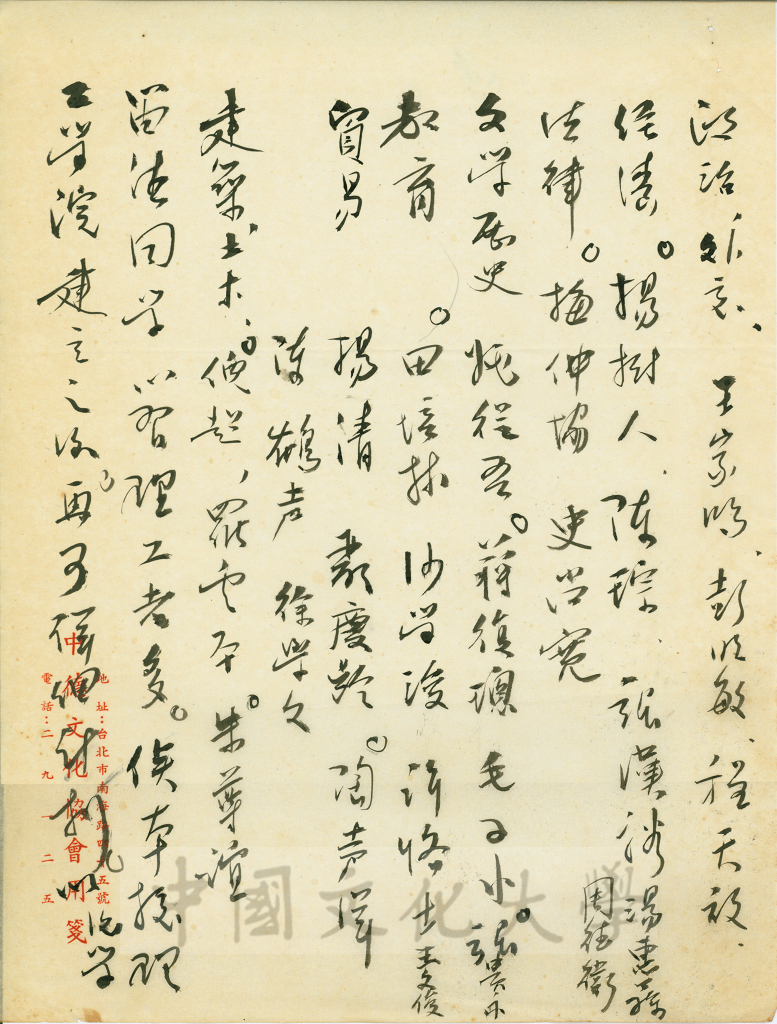 政治外交、王家鴻、彭明敏、程天放、
經濟。楊樹人、陳琮、張漢裕 湯惠蓀 周德偉
法律。梅仲協 史尚寬
文學歷史 姚從吾。蔣復璁 毛子水。張貴永
教育。田培林 沙學浚 許恪士 王文俊
貿易 楊清 鄭慶齡。陶聲洋
陳鶴聲 徐學文
建築土木、倪超、羅雲平。朱尊誼
留德同學以習理工者多。俟本校理
工學院建立之後、再可 計劃 化學
中德文化協會用箋
地址：台北市南海路四十五號
電話：二九一二五
中國文化大學